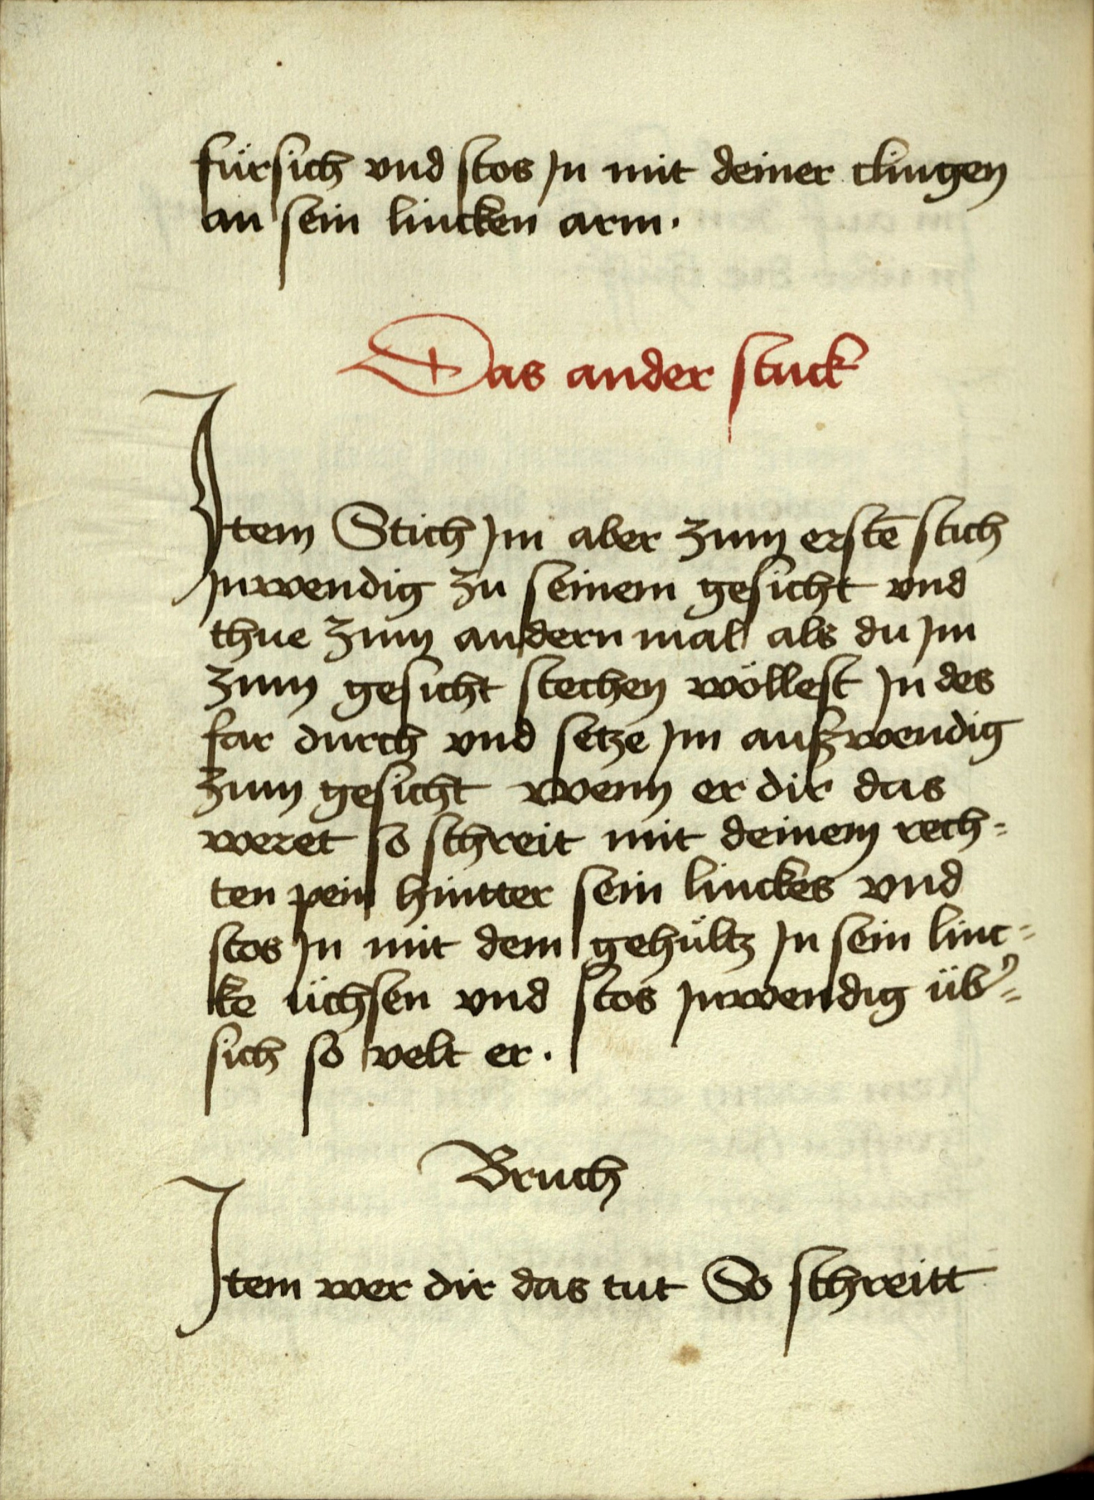 fürsich vnd stos Jn mit deiner clingen
an sein lincken arm.
Das ander stuck
Item Stich Jm aber zum erstē stich
Jnwendig zu seinem gesicht vnd
thue zum andern mal als du Jm
zum gesicht stechen wöllest Jn des
far durch vnd setze Jm außwendig
zum gesicht wenn er dir das
weret so schreit mit deinem rech=
ten pein hintter sein linckes vnd
stos Jn mit dem gehültz Jn sein linc=
ke üchsen vnd stos Jnwendig üb᾽=
sich so velt er.
Bruch
Item wer dir das tut So schreitt